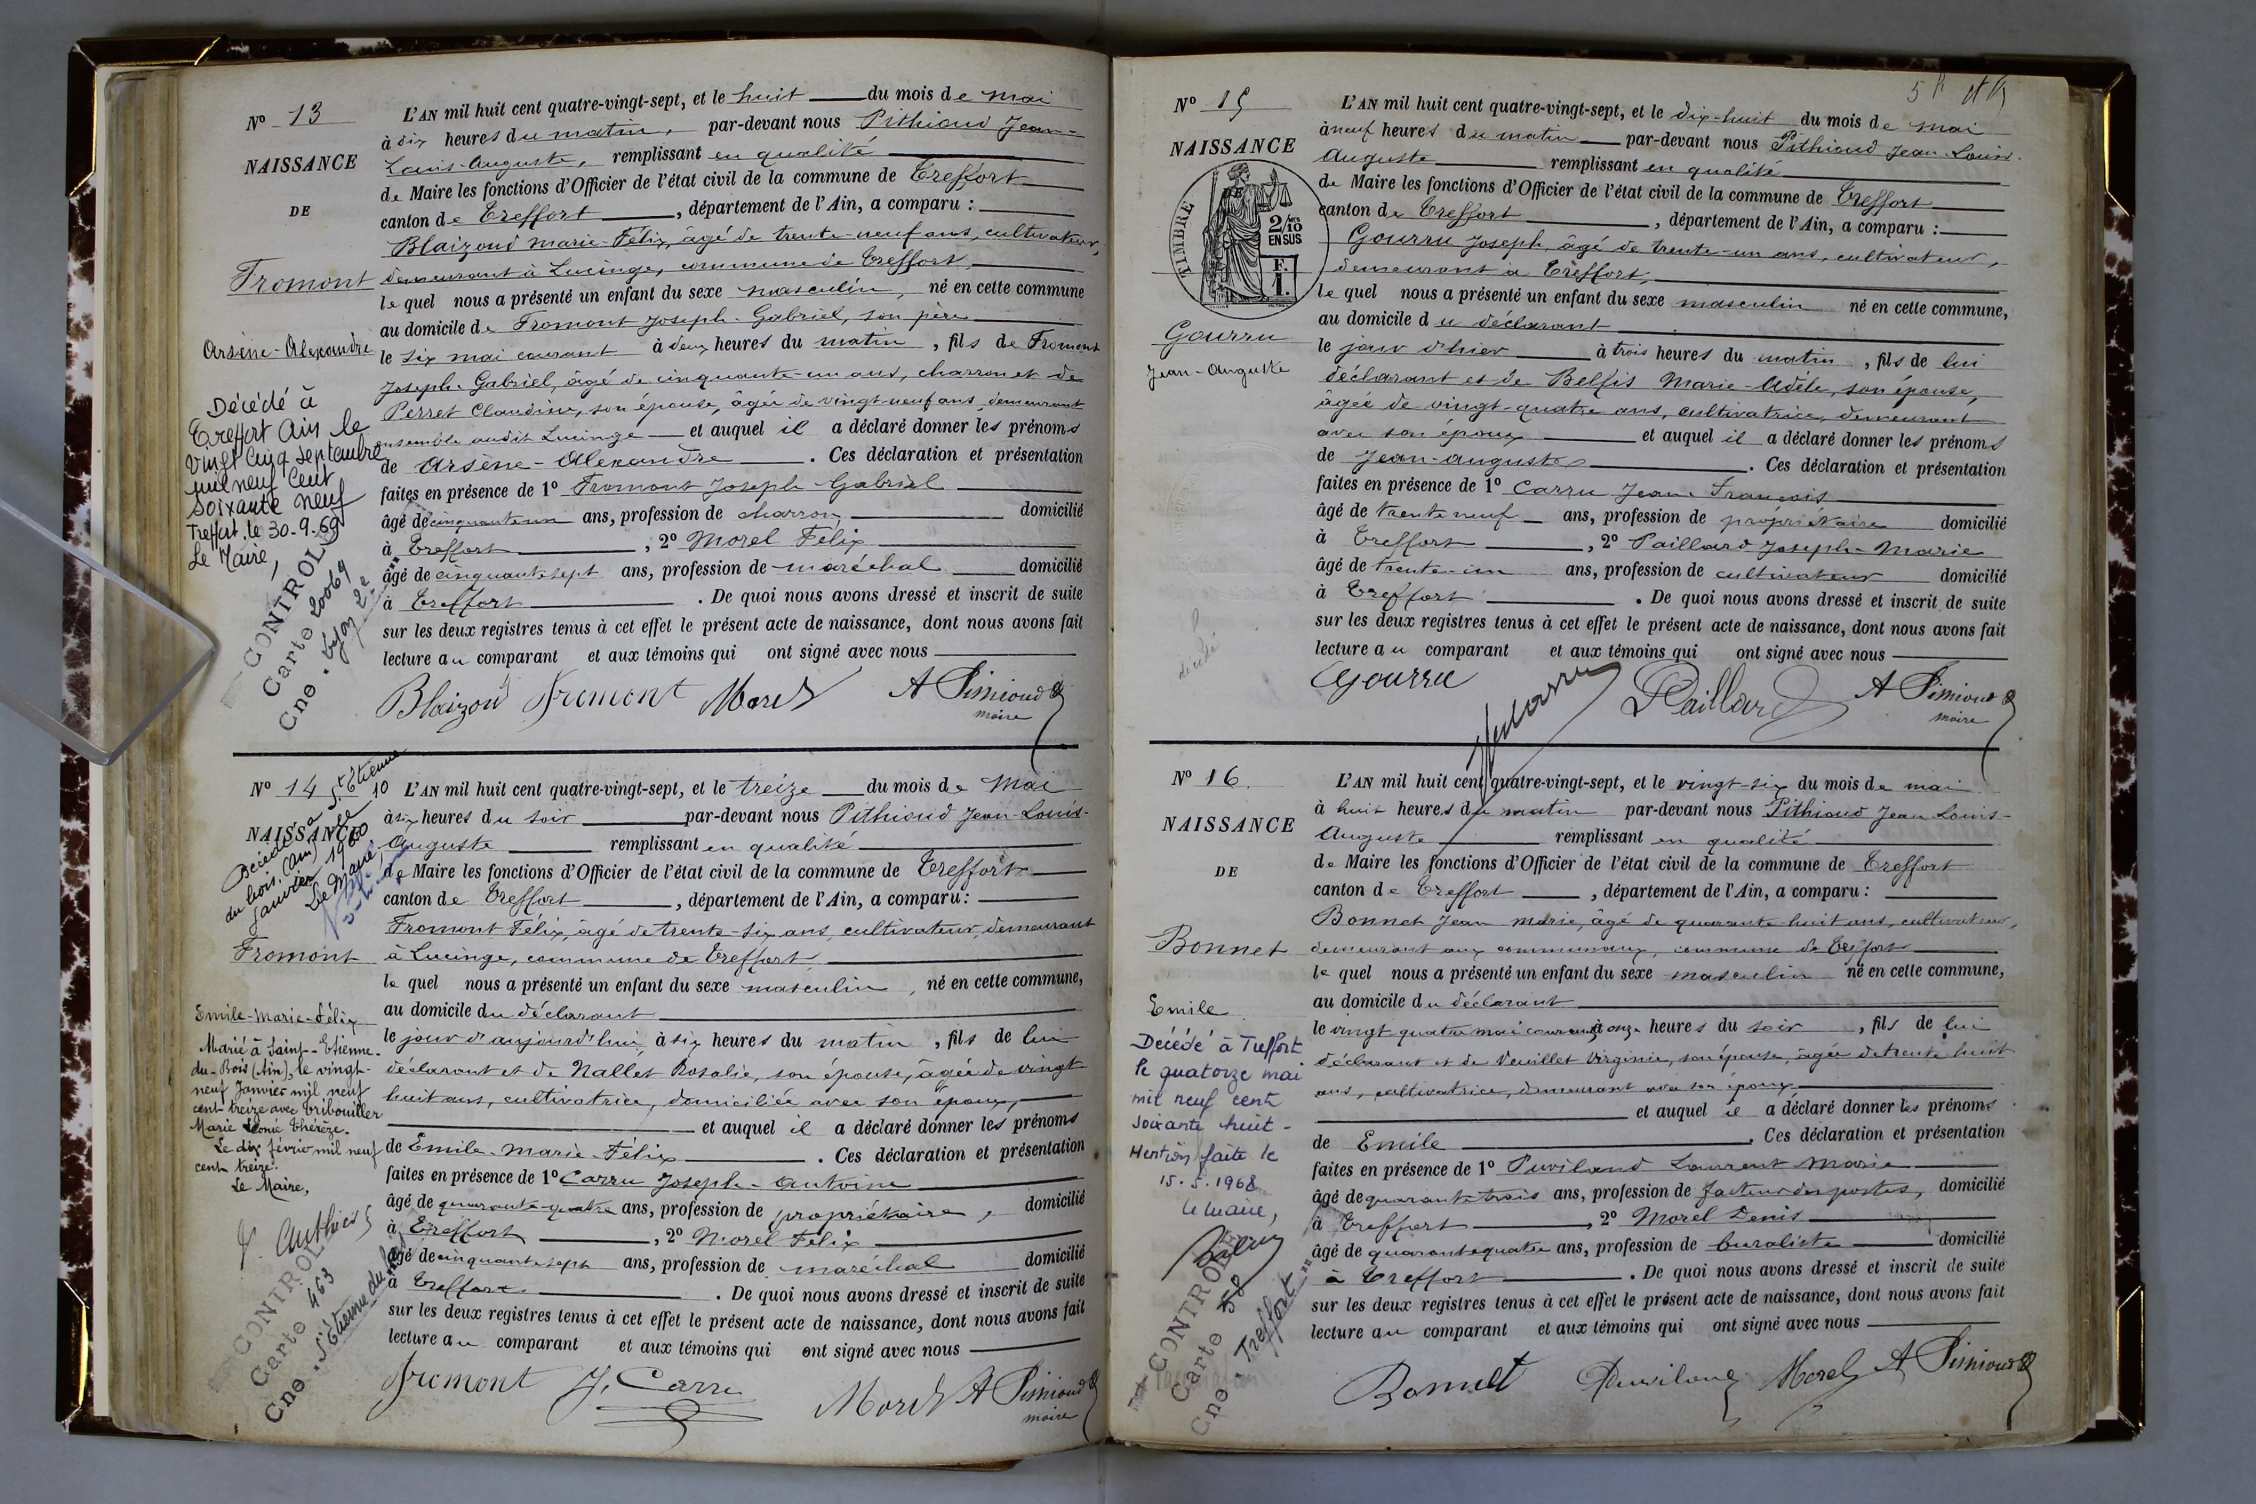 No 13
NAISSANCE
DE
Fromont
Arsène-Alexandre
Décédé à
Treffort Ain le
vingt cinq septembre
mil neuf cent
soixante neuf
Treffort, le 30-9-69
Le Maire,
CONTROLE
Carte 20069
Cne.
L'AN mil huit cent quatre-vingt-sept, et le huit du mois de mai
à dix heures du matin, par-devant nous Pithioud Jean-
Louis-Auguste, remplissant en qualité
de Maire les fonctions d'Officier de l'état civil de la commune de Treffort
canton de Treffort, département de l'Ain, a comparu :
Blaizoud Marie-Félix, âgé de trente-neuf ans, cultivateur,
demeurant à Lucinge, commune de Treffort,
le quel nous a présenté un enfant du sexe masculin, né en cette commune
au domicile de Fromont Joseph-Gabriel, son père
le six mai courant à deux heures du matin, fils de Fromont
Joseph-Gabriel, âgé de cinquante-un ans, charron et de
Perret Claudine, son épouse, âgée de vingt-neuf ans, demeurant
ensemble audit Lucinge et auquel il a déclaré donner les prénoms
de Arsène-Alexandre. Ces déclaration et présentation
faites en présence de 1º Fromont Joseph Gabriel
âgé de cinquante un ans, profession de charron domicilié
à Treffort, 2º Morel Félix
âgé de cinquante sept ans, profession de maréchal domicilié
à Treffort. De quoi nous avons dressé et inscrit de suite
sur les deux registres tenus à cet effet le présent acte de naissance, dont nous avons fait
lecture au comparant et aux témoins qui ont signé avec nous
Blaizoud Fromont Morel A Pithioud
maire
No 14
NAISSANCE
Décédé à St Etienne
du bois (Ain) le 10
Janvier 1960
Le Maire,
Fromont
Emile-Marie-Félix
Marié à Saint-Etienne-
du-Bois (Ain), le vingt-
neuf Janvier mil neuf
cent treize avec Tribouiller
Marie Léonie Thérèze.
Le dix février mil neuf
cent treize.
Le Maire,
CONTROLE
Carte 463
Cne. St Etienne du bois
L'AN mil huit cent quatre-vingt-sept, et le treize du mois de Mai
à six heures du soir par-devant nous Pithioud Jean-Louis-
Auguste remplissant en qualité
de Maire les fonctions d'Officier de l'état civil de la commune de Treffort
canton de Treffort, département de l'Ain, a comparu :
Fromont Félix, âgé de trente-six ans, cultivateur, demeurant
à Lucinge, commune de Treffort,
le quel nous a présenté un enfant du sexe masculin, né en cette commune,
au domicile du déclarant
le jour d'aujourd'hui, à six heures du matin, fils de lui
déclarant et de Nallet Rosalie, son épouse, âgée de vingt
huit ans, cultivatrice, domiciliée avec son époux,
et auquel il a déclaré donner les prénoms
de Emile-Marie-Félix. Ces déclaration et présentation
faites en présence de 1º Carru Joseph-Antoine
âgé de quarante-quatre ans, profession de propriétaire, domicilié
à Treffort, 2º Morel Félix
âgé de cinquante sept ans, profession de maréchal domicilié
à Treffort. De quoi nous avons dressé et inscrit de suite
sur les deux registres tenus à cet effet le présent acte de naissance, dont nous avons fait
lecture au comparant et aux témoins qui ont signé avec nous
Fromont J. Carru Morel A Pithioud
maire
No 15
NAISSANCE
TIMBRE
2/10
EN SUS
F.
1.
Gourru
Jean-Auguste
décédé
L'AN mil huit cent quatre-vingt-sept, et le dix-huit du mois de mai
à neuf heures du matin par-devant nous Pithioud Jean-Louis-
Auguste remplissant en qualité
de Maire les fonctions d'Officier de l'état civil de la commune de Treffort
canton de Treffort, département de l'Ain, a comparu :
Gourru Joseph, âgé de trente-un ans, cultivateur,
demeurant à Treffort,
le quel nous a présenté un enfant du sexe masculin né en cette commune,
au domicile du déclarant
le jour d'hier à trois heures du matin, fils de lui
déclarant et de Belfis Marie-Adèle, son épouse,
âgée de vingt-quatre ans, cultivatrice, demeurant
avec son époux et auquel il a déclaré donner les prénoms
de Jean-Auguste. Ces déclaration et présentation
faites en présence de 1º Carru Jean-François
âgé de trente neuf ans, profession de propriétaire domicilié
à Treffort, 2º Paillard Joseph-Marie
âgé de trente-un ans, profession de cultivateur domicilié
à Treffort. De quoi nous avons dressé et inscrit de suite
sur les deux registres tenus à cet effet le présent acte de naissance, dont nous avons fait
lecture au comparant et aux témoins qui ont signé avec nous
Gourru Carru Paillard A Pithioud
maire
No 16
NAISSANCE
DE
Bonnet
Emile
Décédé à Treffort
le quatorze mai
mil neuf cent
soixante huit -
Mention faite le
15.5.1968
Le maire,
CONTROLE
Carte 58
Cne. Treffort
L'AN mil huit cent quatre-vingt-sept, et le vingt-six du mois de mai
à huit heures du matin par-devant nous Pithioud Jean Louis-
Auguste remplissant en qualité
de Maire les fonctions d'Officier de l'état civil de la commune de Treffort
canton de Treffort, département de l'Ain, a comparu :
Bonnet Jean Marie, âgé de quarante huit ans, cultivateur,
demeurant aux communaux, commune de Treffort
le quel nous a présenté un enfant du sexe masculin né en cette commune,
au domicile du déclarant
le vingt quatre mai courant, à onze heures du soir, fils de lui
déclarant et de Veuillet Virginie, son épouse, âgée de trente huit
ans, cultivatrice, demeurant avec son époux
et auquel il a déclaré donner les prénoms
de Emile. Ces déclaration et présentation
faites en présence de 1º Puviland Laurent Marie
âgé de quarante trois ans, profession de facteur des postes, domicilié
à Treffort, 2º Morel Denis
âgé de quarante quatre ans, profession de buraliste domicilié
à Treffort. De quoi nous avons dressé et inscrit de suite
sur les deux registres tenus à cet effet le présent acte de naissance, dont nous avons fait
lecture au comparant et aux témoins qui ont signé avec nous
Bonnet Puviland Morel A Pithioud